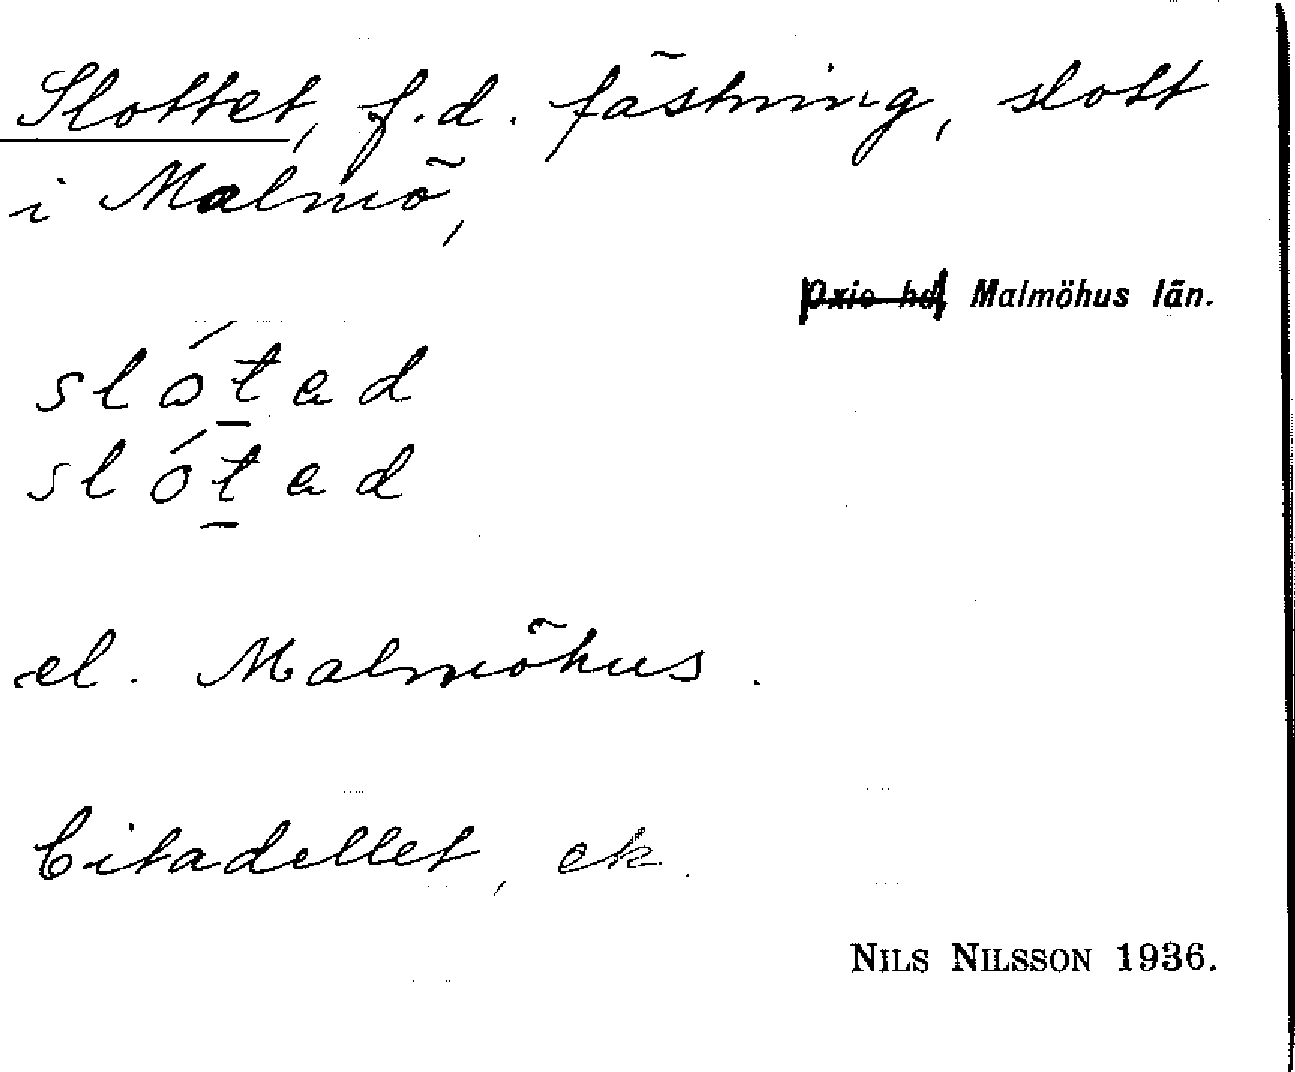 Slottet, f.d. fästning, slott
i Malmö,
Oxie hd, Malmöhus län.
slótad
slótad
el. Malmöhus.
Citadellet, ek.
NILS NILSSON 1936.